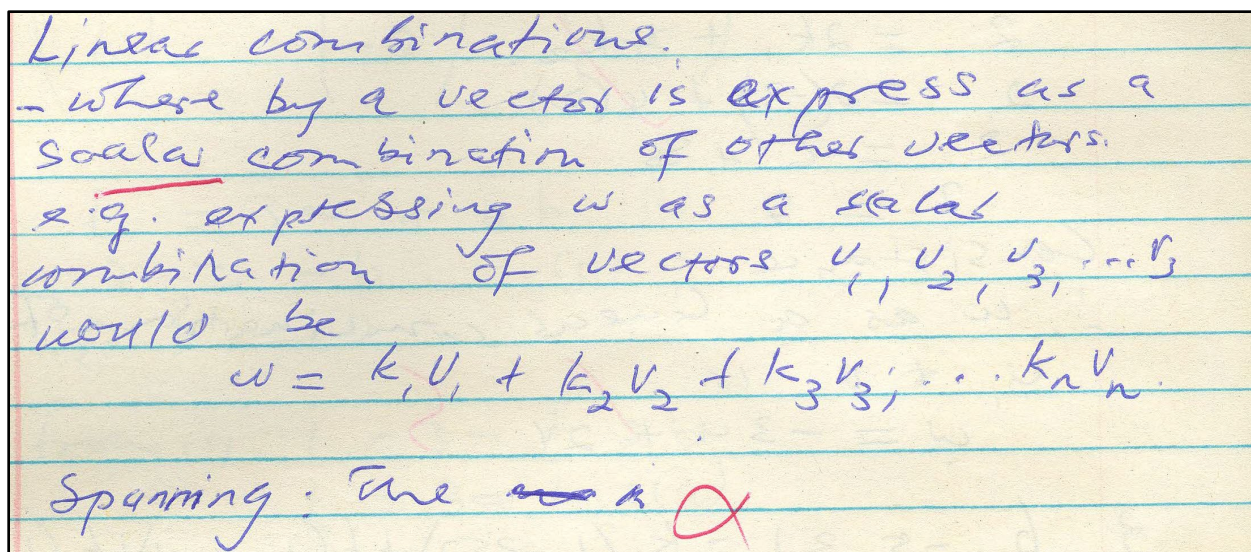 Linear combinations.
- where by a vector is express as a
scalar combination of other vectors.
e.g. expressing w as a scalar
combination of vectors v₁, v₂, v₃, ... v₃
would be
w = k₁v₁ + k₂v₂ + k₃v₃, ... kₙvₙ.
Spanning. The